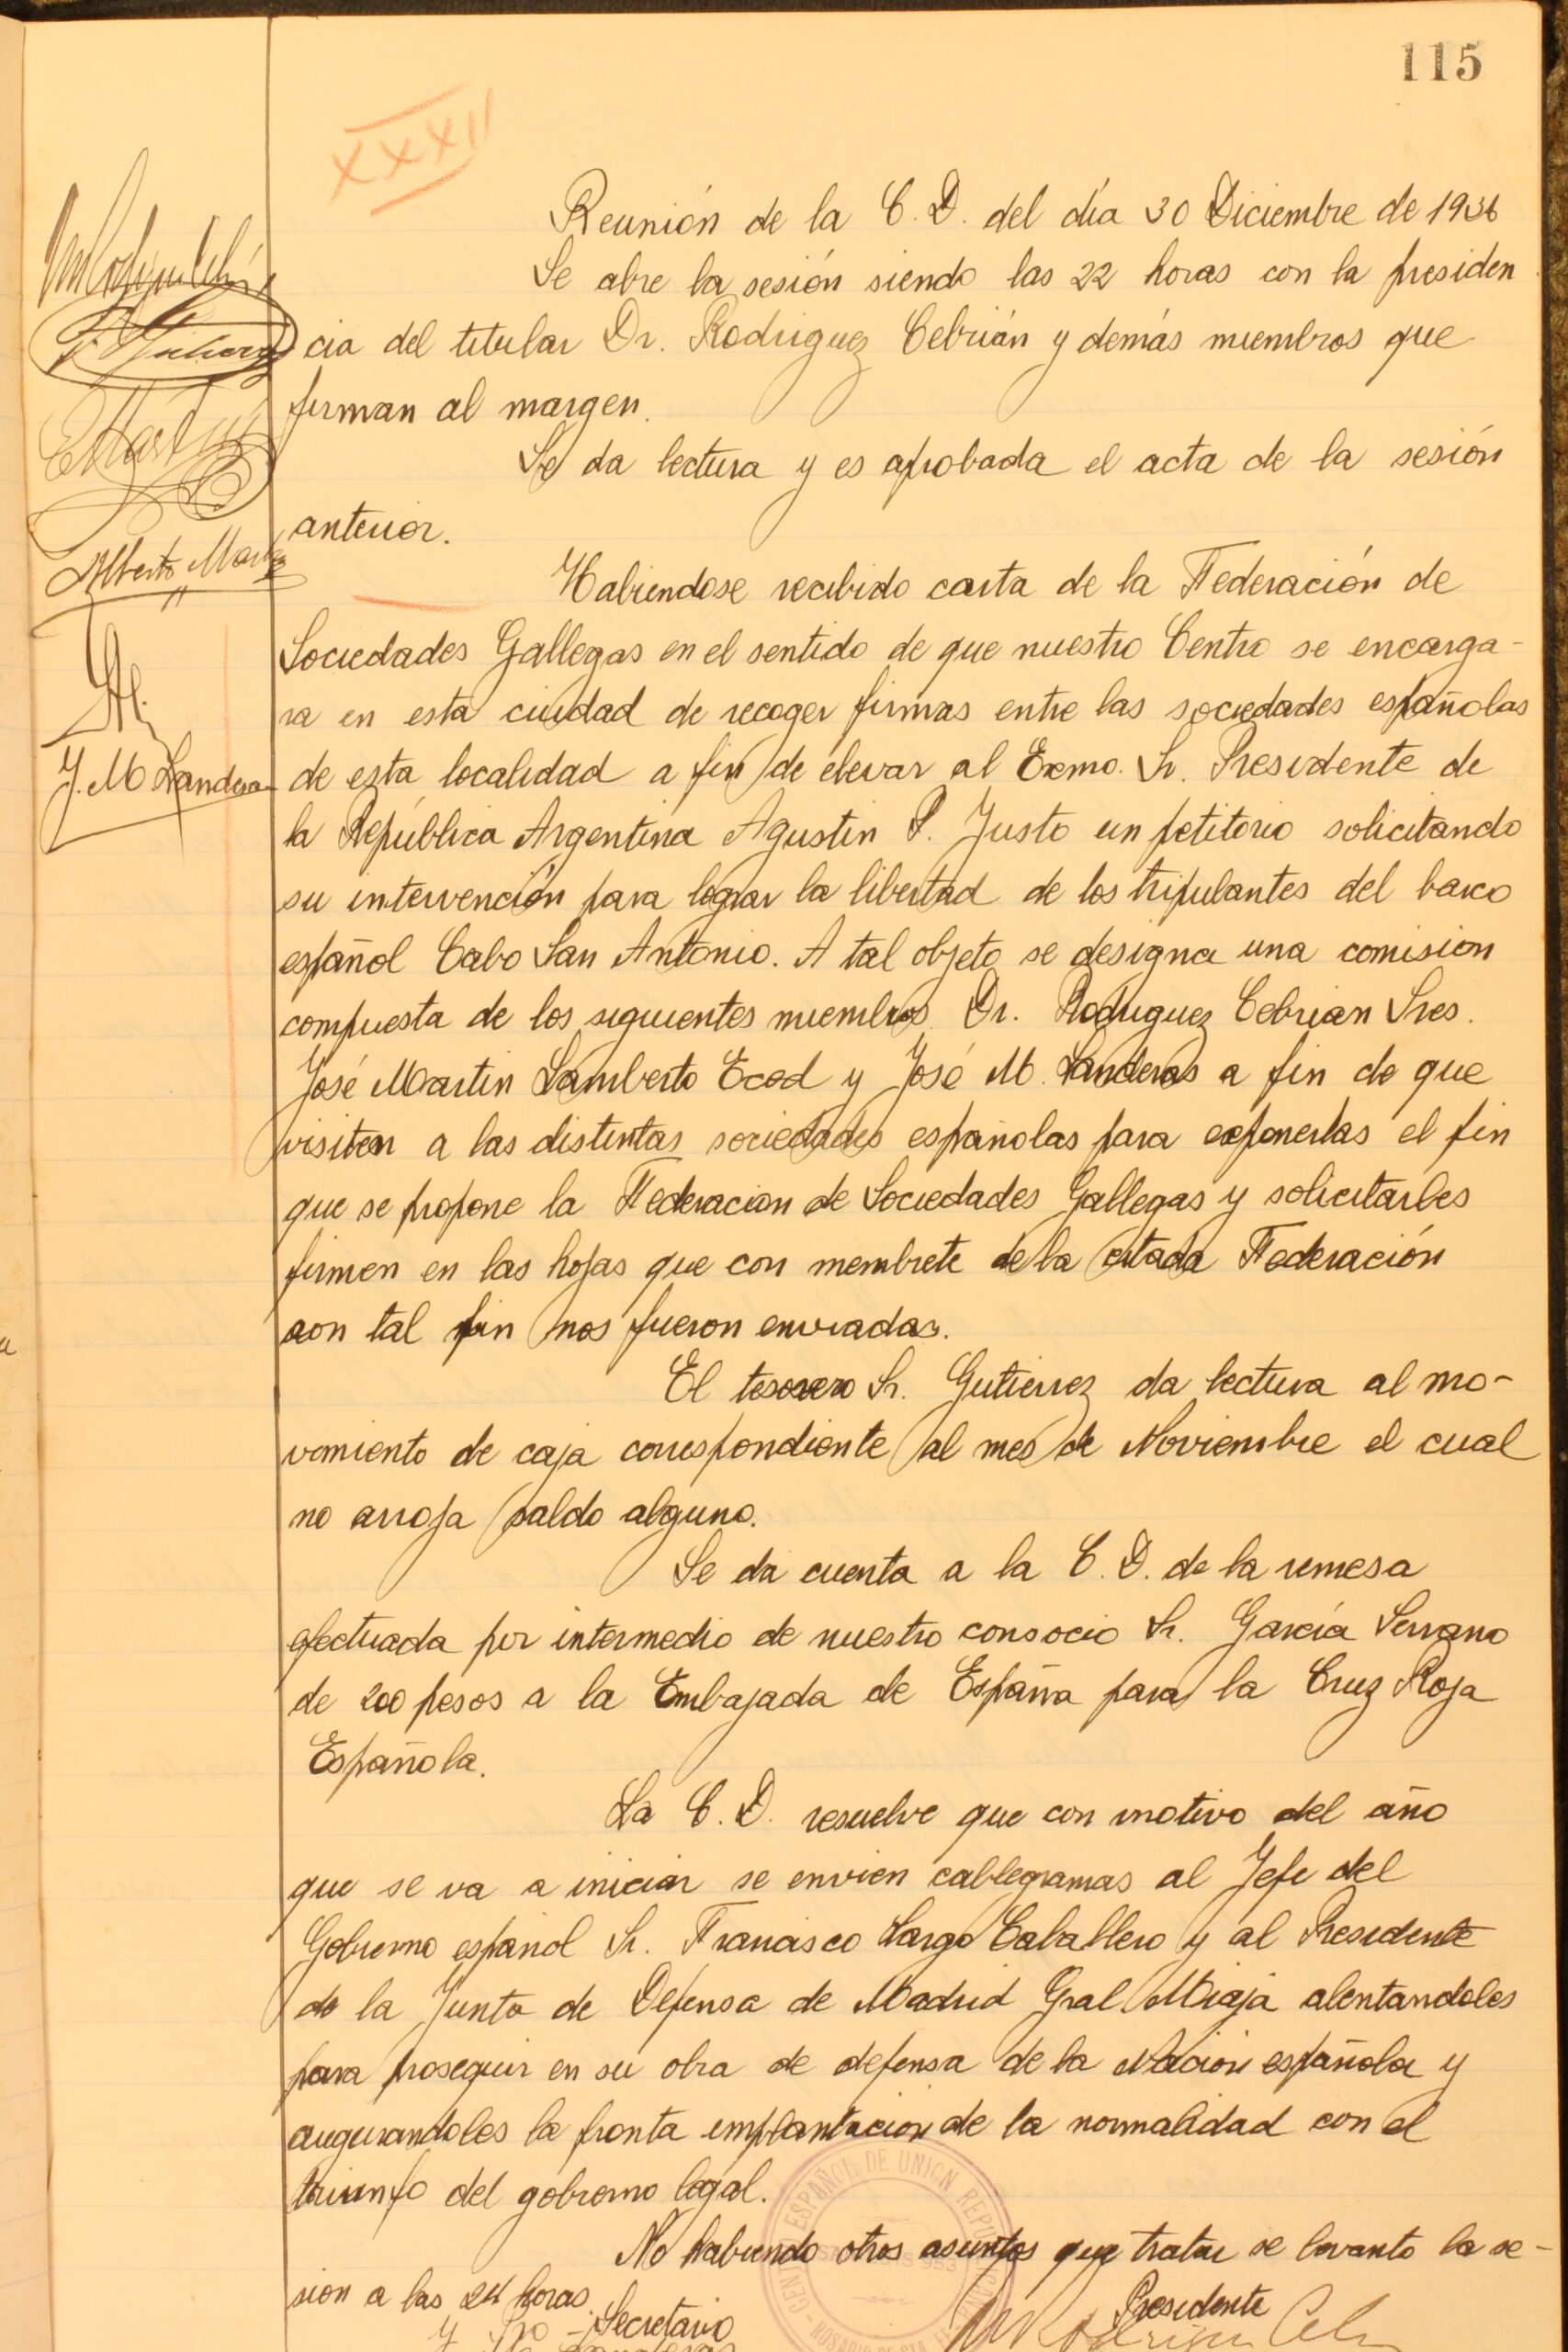 115
XXXII
Reunión de la C. D. del día 30 Diciembre de 1936
Se abre la sesión siendo las 22 horas con la presiden
cia del titular Dr. Rodriguez Cebrián y demás miembros que
firman al margen.
Se da lectura y es aprobada el acta de la sesión
anterior.
Alberto
J. M Landera
Habiendose recibido carta de la Federación de
Sociedades Gallegas en el sentido de que nuestro Centro se encarga-
ra en esta ciudad de recoger firmas entre las sociedades españolas
de esta localidad a fin de elevar al Exmo. Sr. Presidente de
la República Argentina Agustin P. Justo un petitorio solicitando
su intervención para lograr la libertad de los tripulantes del barco
español Cabo San Antonio. A tal objeto se designa una comision
compuesta de los siguientes miembros Dr. Rodriguez Cebrian Sres.
José Martin Lamberto Ecod y José M. Landeras a fin de que
visiten a las distintas sociedades españolas para exponerlas el fin
que se propone la Federacion de Sociedades Gallegas y solicitarles
firmen en las hojas que con membrete de la citada Federación
con tal fin nos fueron enviadas.
El tesorero Sr. Gutierrez da lectura al mo-
vimiento de caja correspondiente al mes de Noviembre el cual
no arroja saldo alguno.
Se da cuenta a la C. D. de la remesa
efectuada por intermedio de nuestro consocio Sr. García Serrano
de 200 pesos a la Embajada de España para la Cruz Roja
Española.
La C. D. resuelve que con motivo del año
que se va a iniciar se envien cablegramas al Jefe del
Gobierno español Sr. Francisco Largo Caballero y al Presidente
de la Junta de Defensa de Madrid Gral Miaja alentandoles
para proseguir en su obra de defensa de la Nación española y
augurandoles la pronta implantacion de la normalidad con el
triunfo del gobierno legal.
No habiendo otros asuntos que tratar se levanto la se-
sion a las 24 horas.
Secretario
Presidente
CENTRO ESPAÑOL DE UNION REPUBLICANA